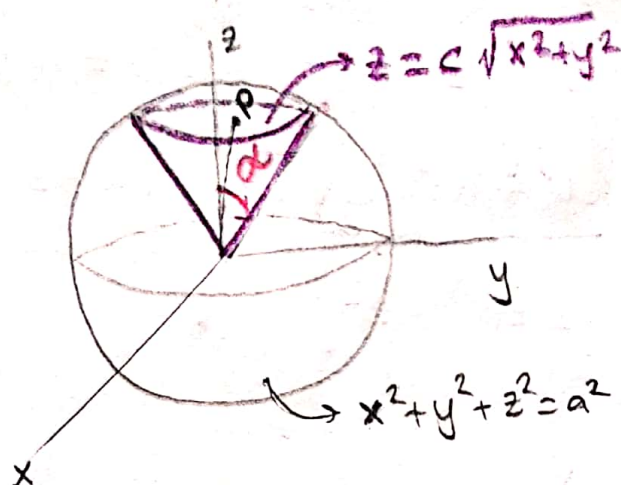 z
z = c √x²+y²
P
α
y
x²+y²+z²=a²
x